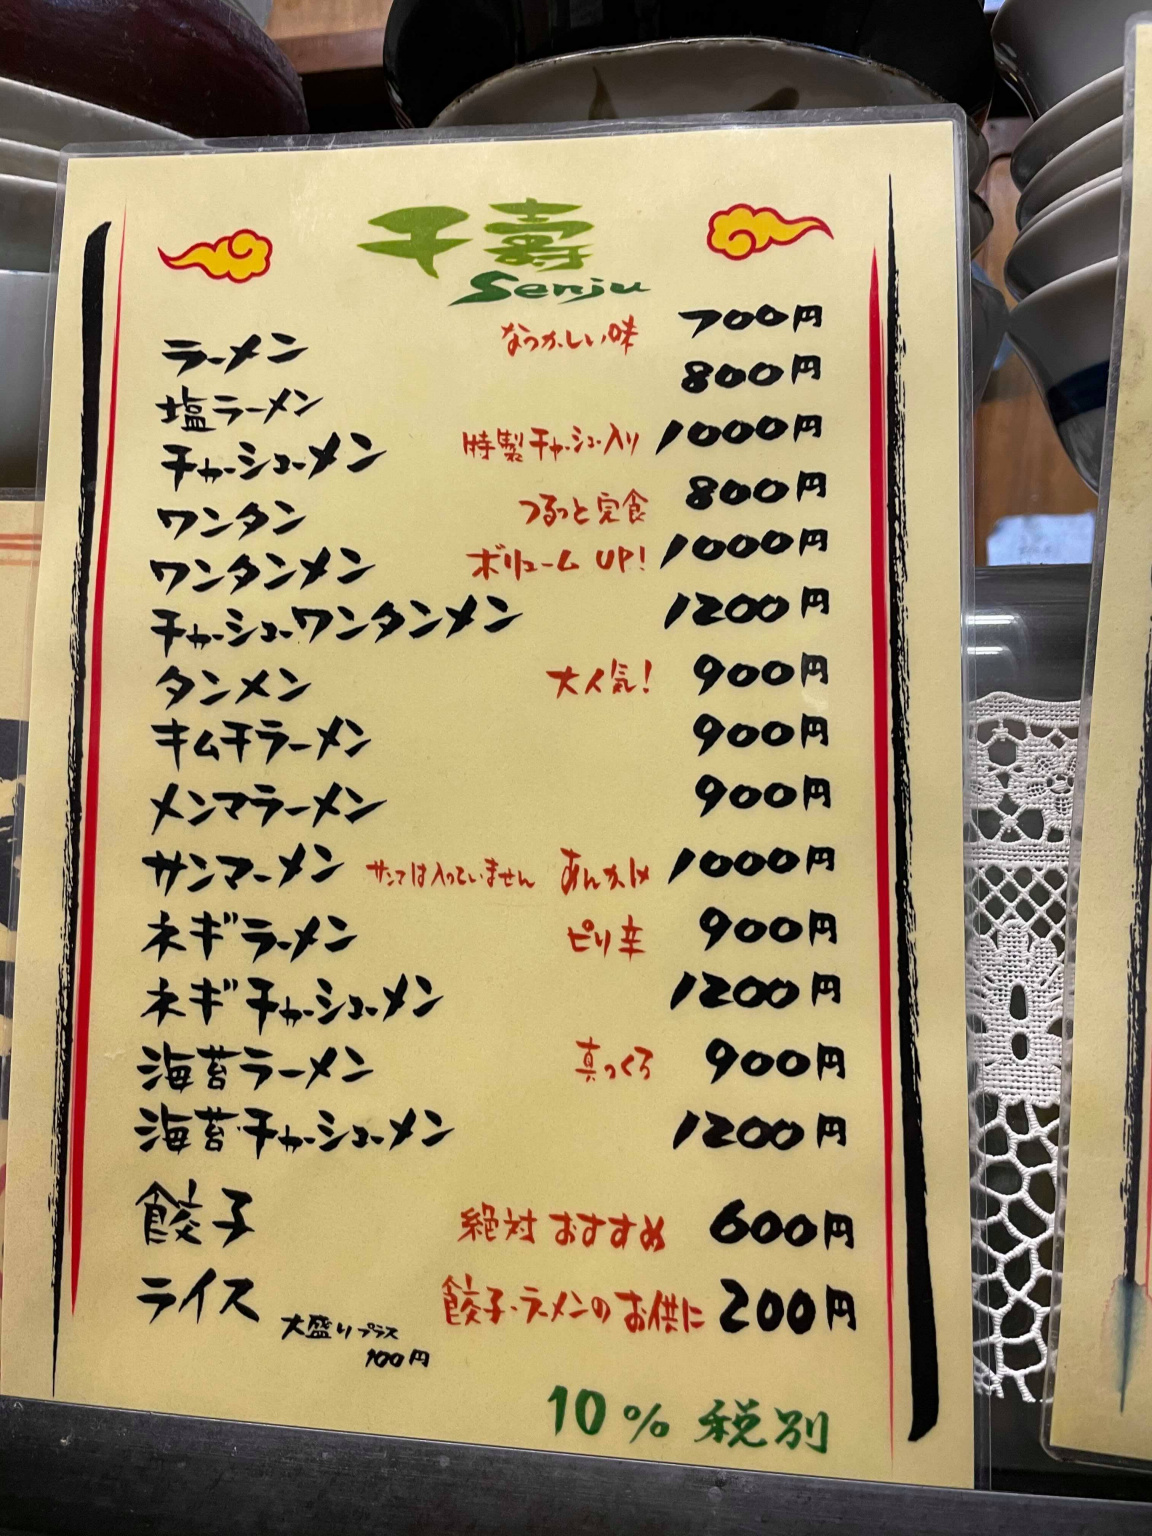 千寿
Senju
ラーメン なつかしい味 700円
塩ラーメン 800円
チャーシューメン 特製チャーシュー入り 1000円
ワンタン つるっと完食 800円
ワンタンメン ボリューム UP! 1000円
チャーシューワンタンメン 1200円
タンメン 大人気! 900円
キムチラーメン 900円
メンマラーメン 900円
サンマーメン サンマは入っていません あんかけ 1000円
ネギラーメン ピリ辛 900円
ネギチャーシューメン 1200円
海苔ラーメン 真っくろ 900円
海苔チャーシューメン 1200円
餃子 絶対おすすめ 600円
ライス 餃子・ラーメンのお供に 200円
大盛りプラス
100円
10% 税別